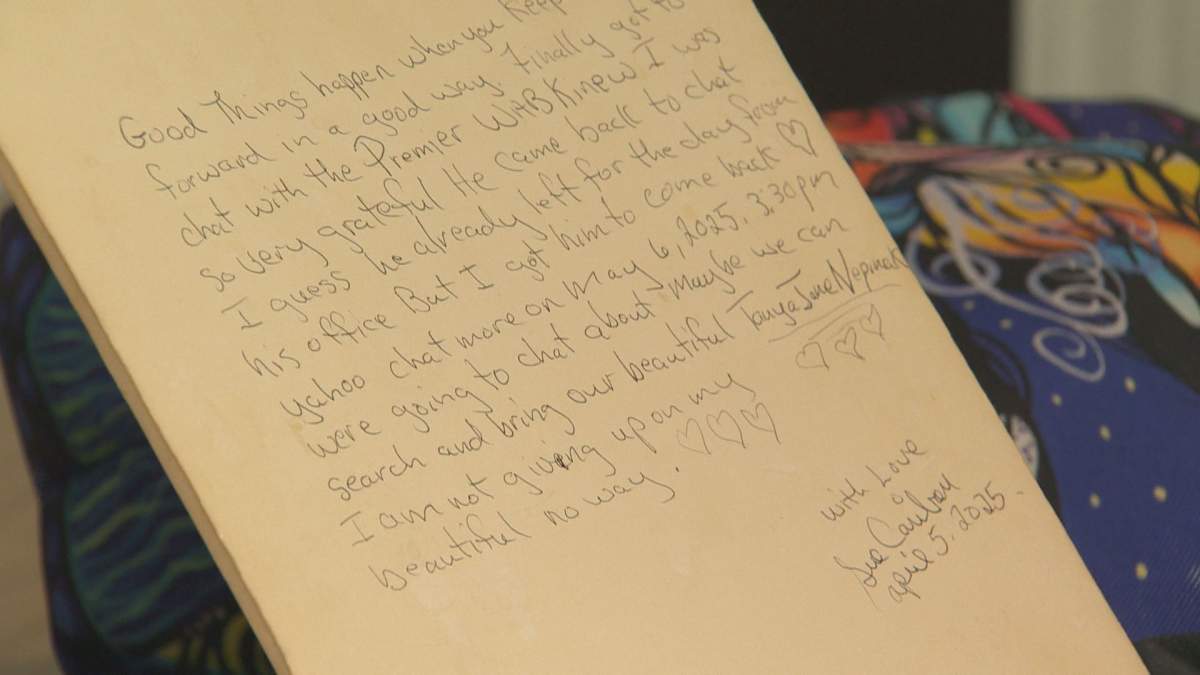 Good Things happen when you keep
forward in a good way. Finally got to
chat with the Premier WAB Kinew I was
so very grateful He came back to chat
I guess he already left for the day from
his office But I got him to come back ♡
yahoo chat more on may 6, 2025, 3:30pm
were going to chat about maybe we can
search and bring our beautiful Tanya Jane Nepinak
I am not giving up on my ♡♡♡
beautiful no way. ♡♡♡
with Love
Sue Caribou
april 5. 2025.